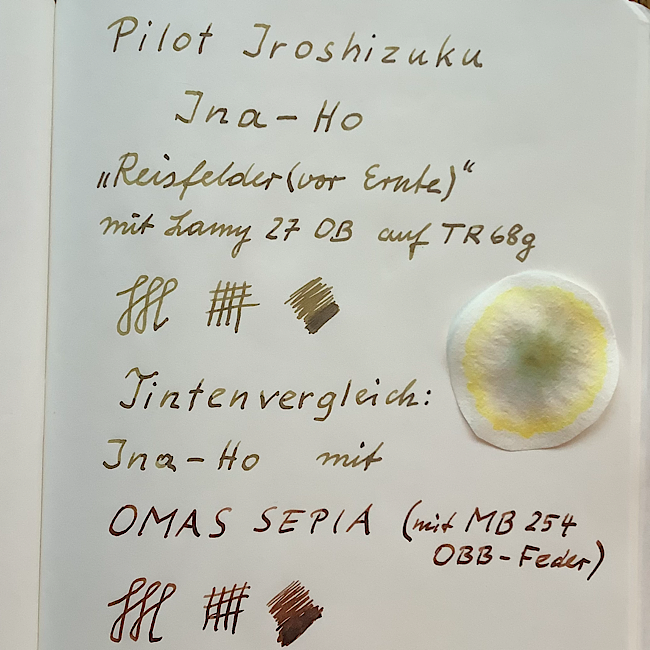 Pilot Iroshizuku
Ina-Ho
„Reisfelder (vor Ernte)“
mit Lamy 27 OB auf TR 68g
Tintenvergleich:
Ina-Ho mit
OMAS SEPIA (mit MB 254
OBB-Feder)